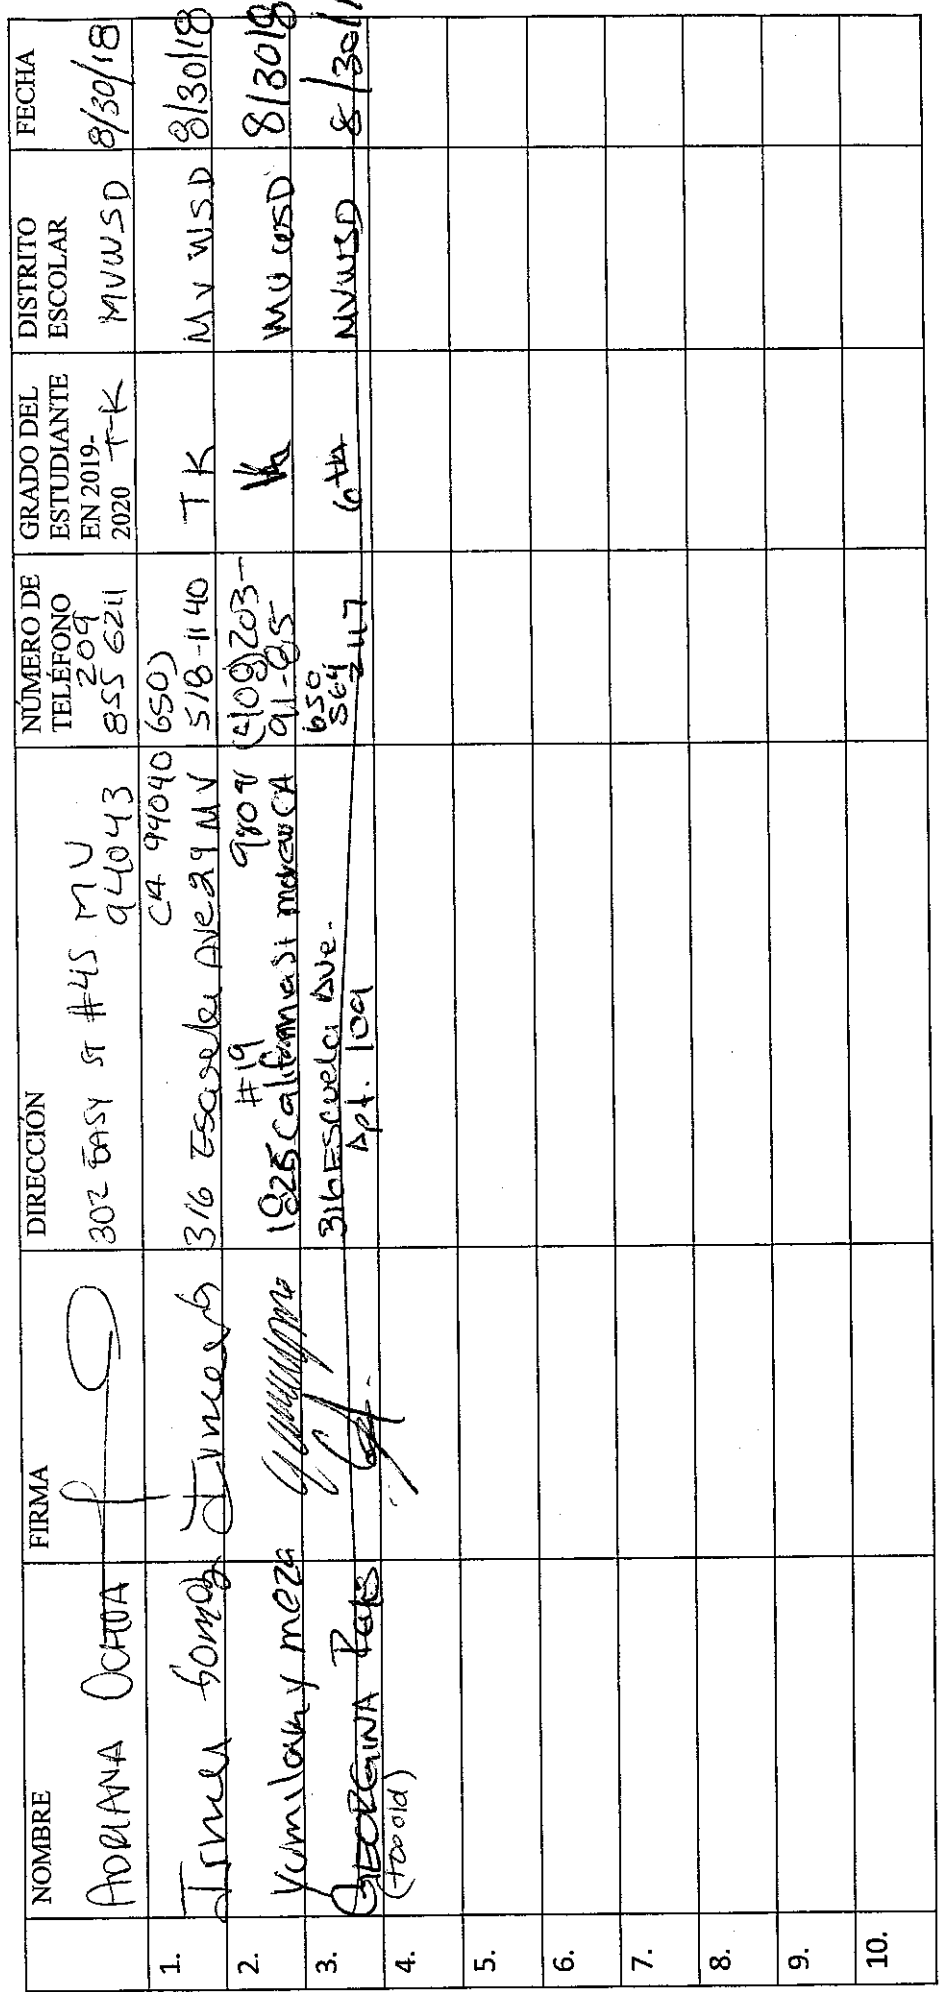 NOMBRE FIRMA DIRECCIÓN NÚMERO DE TELÉFONO GRADO DEL ESTUDIANTE EN 2019-2020 DISTRITO ESCOLAR FECHA
ADRIANA OCHOA 302 EASY ST #45 MV 94043 209 855 6211 T-K MVWSD 8/30/18
1. Irma Gomez 316 Escuela Ave 29 MV CA 94040 650) 518-1140 TK MV WSD 8/30/18
2. Yumilany meza #19 1825 California St CA (408) 203-91-85 MV WSD 8/30/18
3. GEORGINA 316 Escuela Ave. Apt. 109 650 564 2117 6th MVWSD 8/30/1
4. (too old)
5.
6.
7.
8.
9.
10.